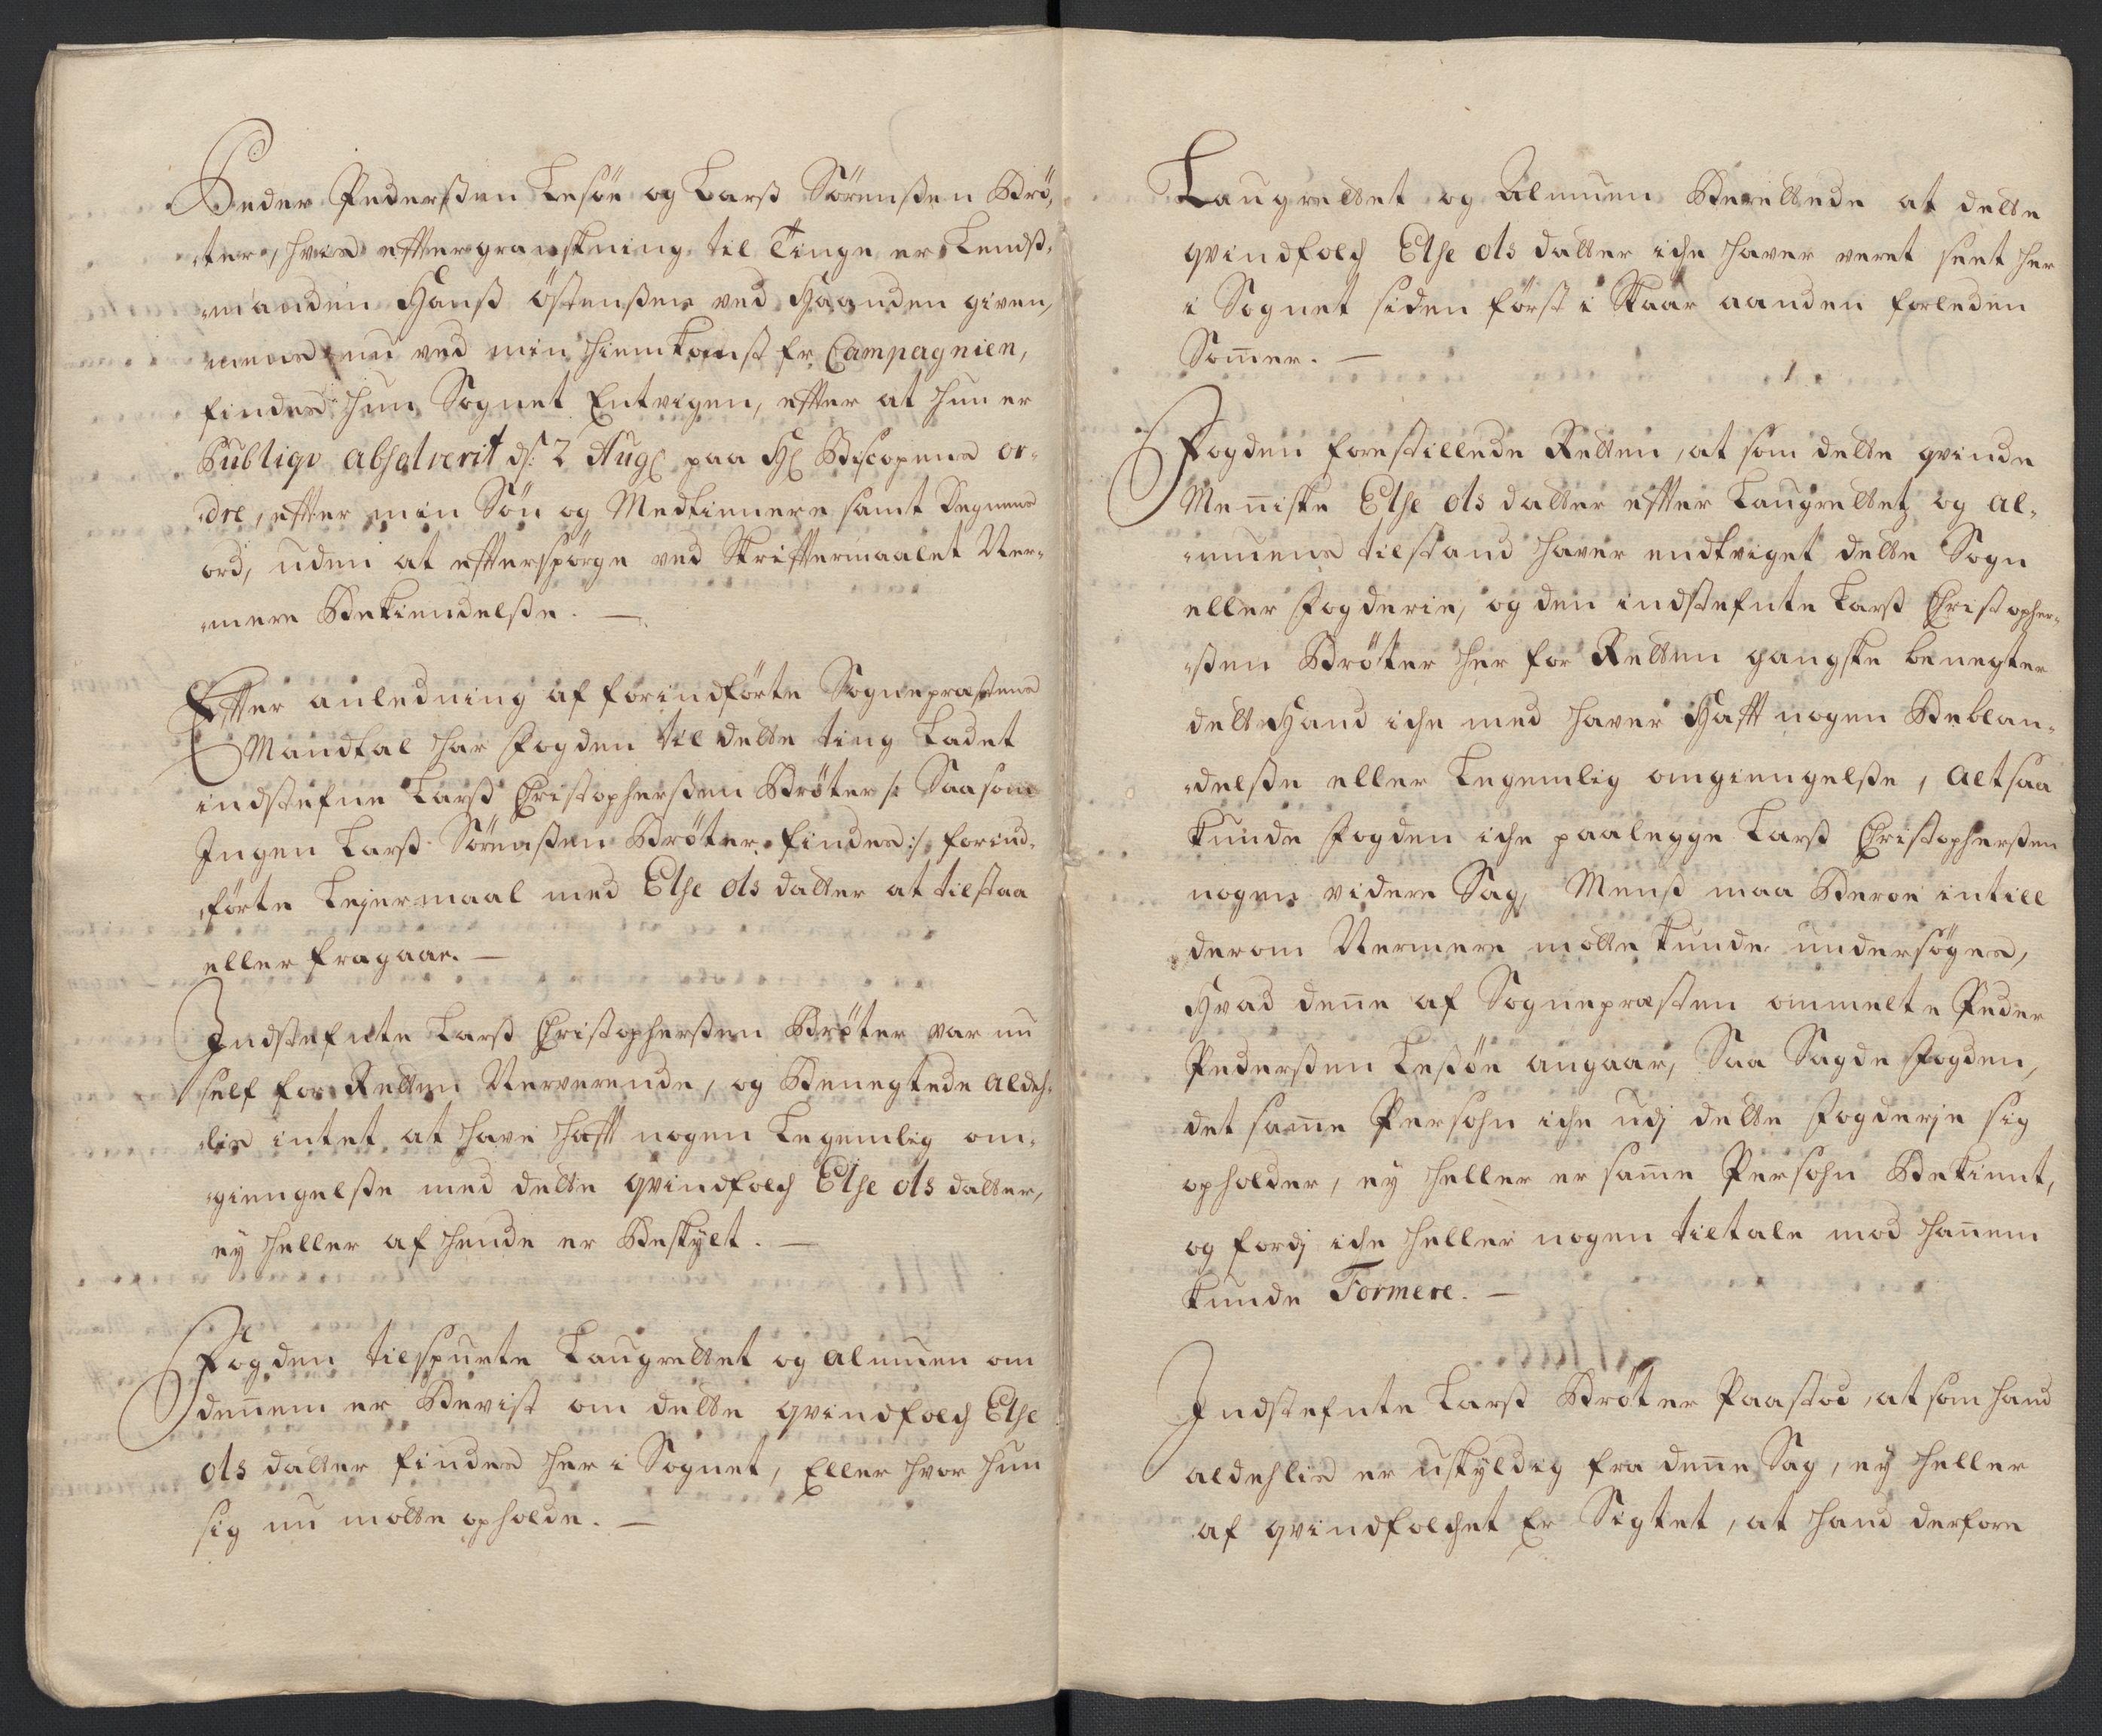 Peder Pederßen Lesöe og Larß Sörenßen Brö,
ter, hvis efftergranskning til Tinge er Lends,
manden Hanß Östenßen ved Haanden given,
mens nu ved min hiemkomst fr Campagnien,
findes hun Sognet Entvigen, effter at hun er
Publiqv absolverit ds: 2 Aug: paa H: Biscopens or-
dre, effter min Sön og Medtienere samt Degnens
ord, uden at efterspörge ved Skrifftermaalet Ner-
mere Bekiendelße. —
Effter anledning af forindförte Sognepræstens
Mandtal har Fogden til dette ting Ladet
indstefne Larß Christopherßen Bröter /: Saasom
Ingen Larß Sörenßen Bröter findes :/ forind-
förte Lejermaal med Else Ols datter at tilstaa
eller fragaar. —
Indstefnte Larß Christopherßen Bröter var nu
self for Retten Nerverende, og Benegtede aldeh-
lis intet at have hafft nogen Legemlig om-
giengelße med dette qvindfolch Else Ols datter,
ej heller af hende er Beskylt. —
Fogden tilspurte Laugrettet og almuen om
dennem er Bevist om dette qvindfolch Else
Ols datter findes her i Sognet, Eller hvor hun
sig nu motte opholde. —
Laugrettet og Almuen Berettede at dette
qvindfolch Else Ols datter iche haver veret seet her
i Sognet siden först i Skaar aanden forleden
Som̄er. —
Fogden forestillede Retten, at som dette qvinde
Men̄iske Else Ols datter effter Laugrettetz og al-
muens tilstand haver endtviget dette Sogn
eller Fogderie, og den indstefnte Larß Christopher-
ßen Bröter her for Retten gangske benegter
dett Hand iche med haver Hafft nogen Beblan-
delße eller Legemlig omgiengelße, altsaa
kunde Fogden iche paalegge Larß Christopherßen
nogen videre Sag, Menß maa Beroe intill
derom Nermere motte kunde undersöges,
Hvad den̄e af Sognepræsten ommelte Peder
Pederßen Leßöe angaar, Saa Sagde Fogden,
det sam̄e Persohn iche udj dette Fogderje sig
opholder, ey heller er sam̄e Persohn Bekient,
og fordj iche heller nogen tiltale mod han̄em
kunde Formere. —
Indstefnte Larß Bröter Paastod, at som hand
aldehlis er uskyldig fra den̄e Sag, ey heller
af qvindfolchet Er Sigtet, at hand derfore